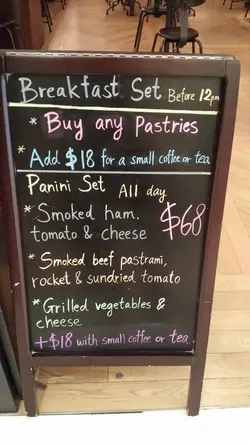 Breakfast Set Before 12pm
* Buy any Pastries
* Add $18 for a small coffee or tea
Panini Set All day
* Smoked ham, $68
tomato & cheese
* Smoked beef pastrami,
rocket & sundried tomato
* Grilled vegetables &
cheese
+$18 with small coffee or tea